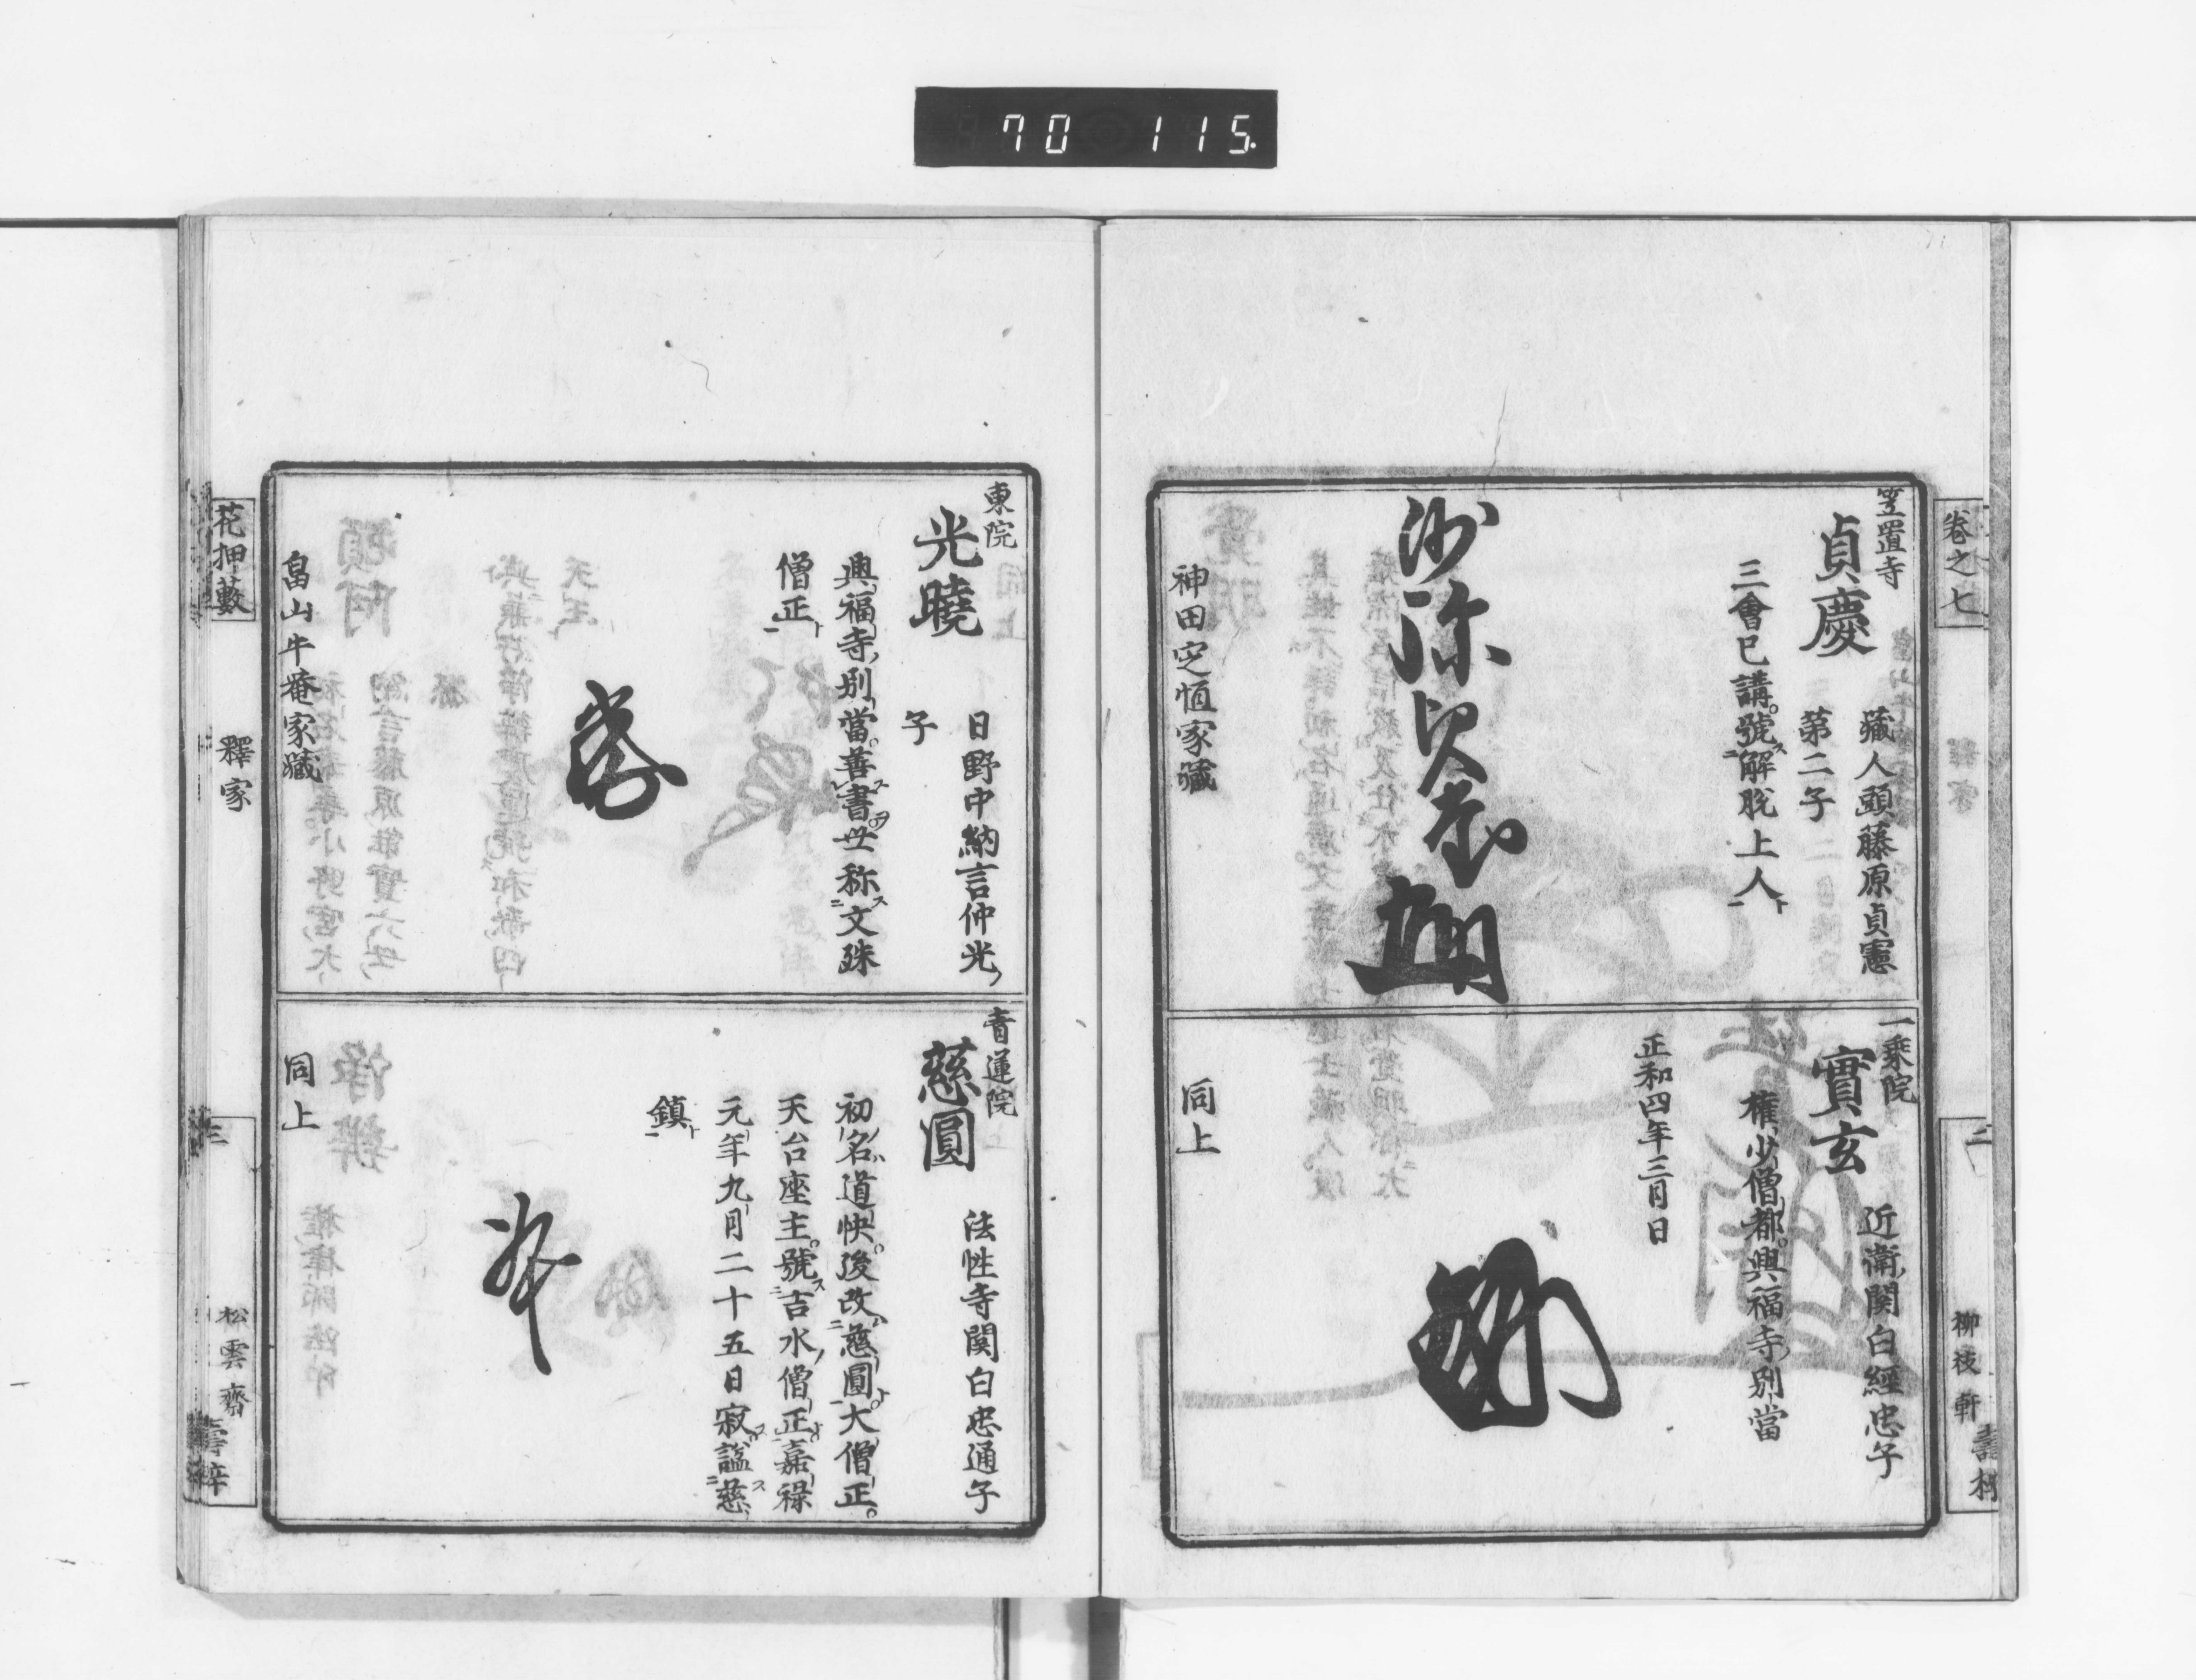 70 115.
卷之七
二
柳枝軒
笠置寺
貞慶
藏人頭藤原貞憲
第二子
三會已講。號ス解脱上人ト
沙弥
神田定恒家藏
一乘院
實玄
近衛関白經忠子
權少僧都。興福寺別當
正和四年三月日
同上
東院
光曉
日野中納言仲光ノ
子
興福寺ノ別當。善書世称ス文殊
僧正ト
畠山牛菴家藏
青蓮院
慈圓
法性寺関白忠通子
初ノ名ハ道快。後改慈圓ト。大僧正。
天台座主。號ス吉水ノ僧正ト。嘉禄
元年九月二十五日寂謚ス慈
鎮ト
同上
花押藪
釋家
三
松雲齋